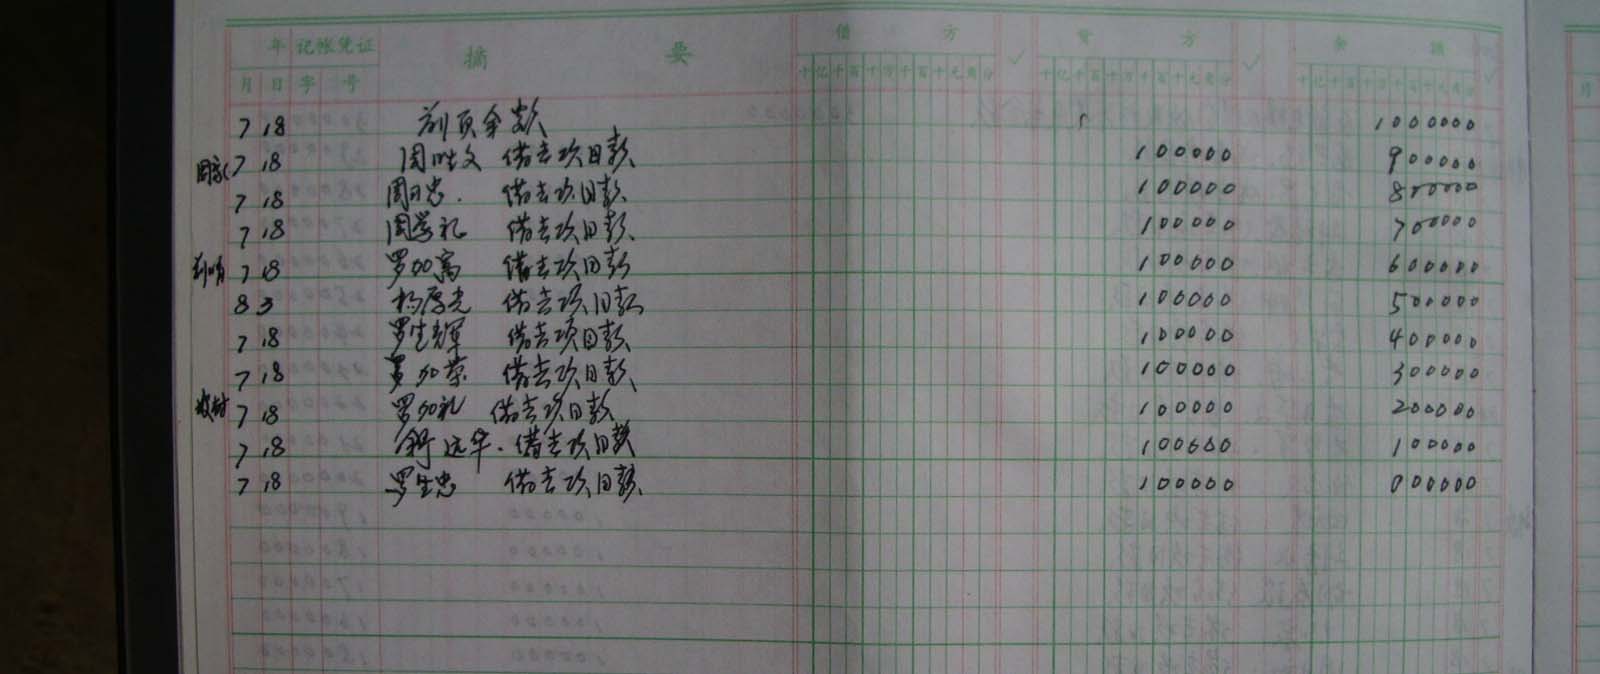 年 记帐凭证 摘 要 借 方 ✓ 贷 方 ✓ 余 额 ✓
月 日 字 号 十亿千百十万千百十元角分 十亿千百十万千百十元角分 十亿千百十万千百十元角分
7 18 前页余额 1000000
7 18 周 文 借去项目款 100000 900000
7 18 周日忠. 借去项目款 100000 800000
7 18 周学礼 借去项目款 100000 700000
7 18 罗加高 借去项目款 100000 600000
8 3 杨厚光 借去项目款 100000 500000
7 18 罗生辉 借去项目款 100000 400000
7 18 罗加荣 借去项目款 100000 300000
7 18 罗加礼 借去项目款 100000 200000
7 18 舒远华. 借去项目款 100000 100000
7 18 罗生忠 借去项目款 100000 000000